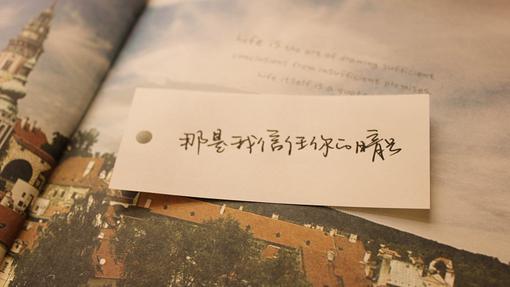 Life is the art of drawing sufficient
conclusions from insufficient premises
Life itself is a quote
那是我信任你的